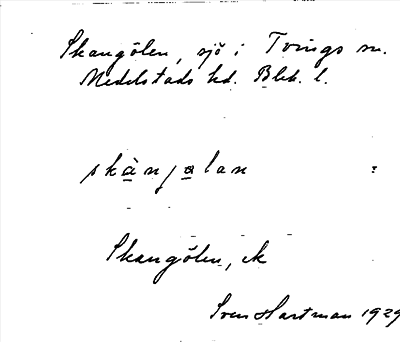 Skangölen, sjö i Tvings sn.
Medelstads hd. Blek. l.
skàngalan :
Skangölen, ek
Sven Hartman 1929